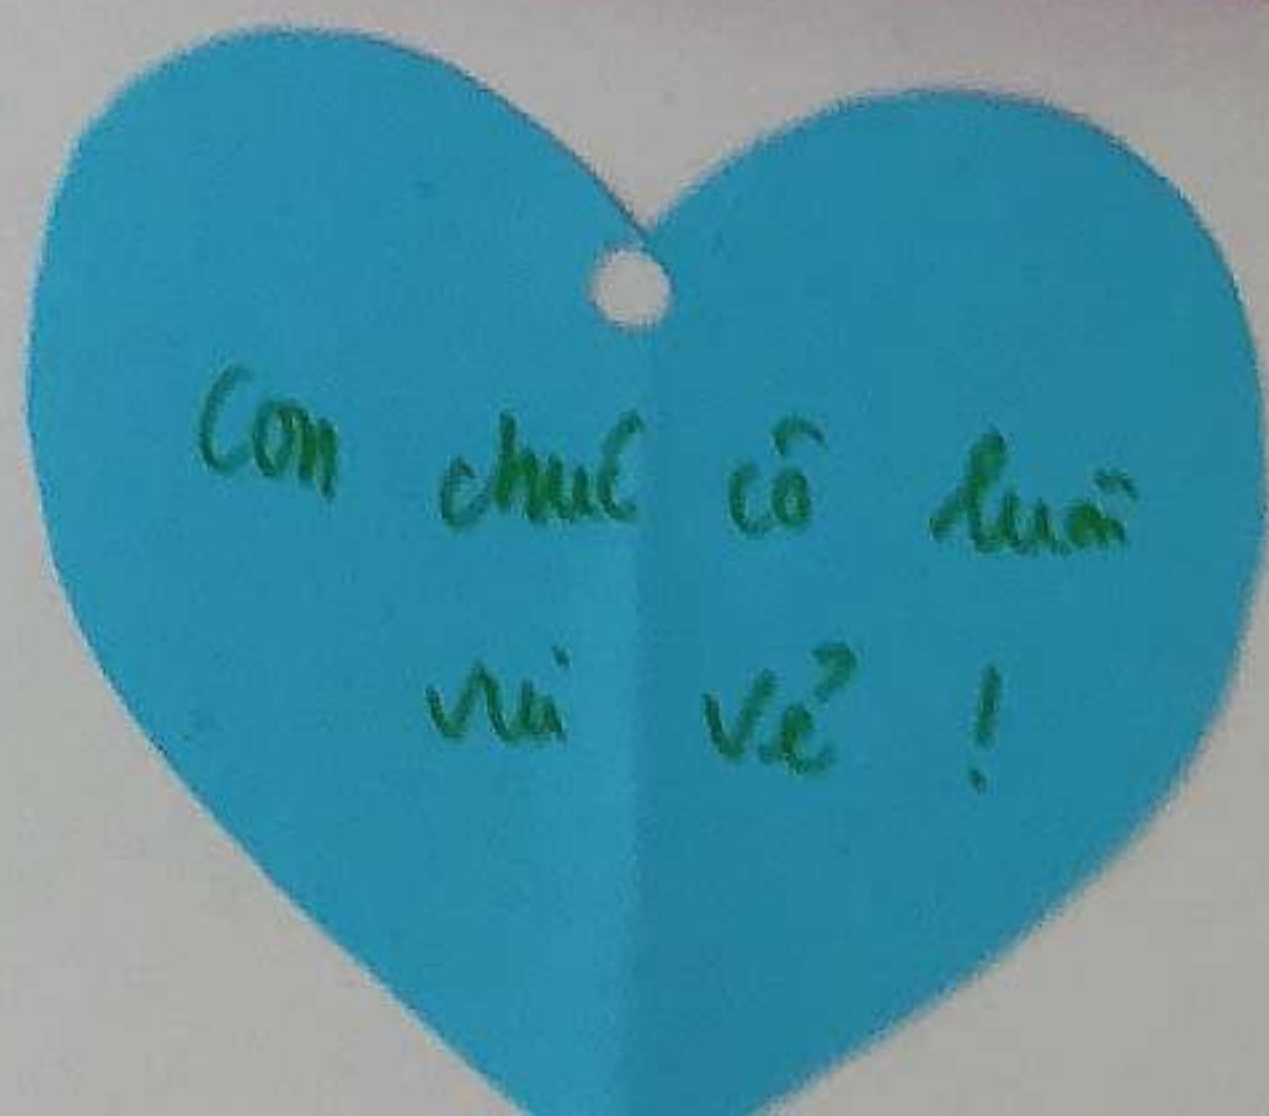 Con chúc cô luôn
vui vẻ !